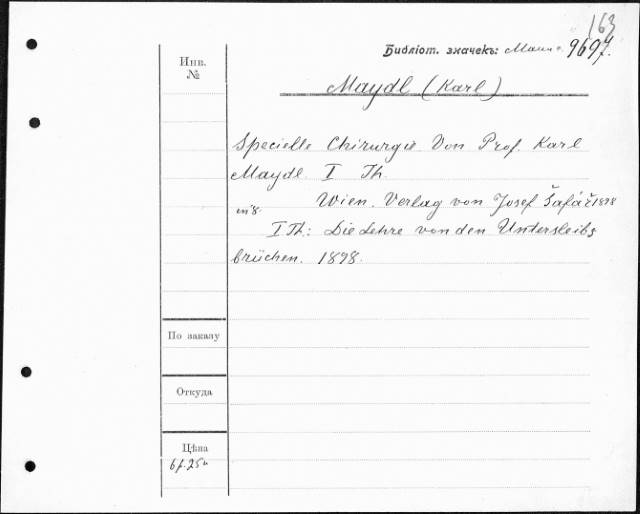 163
Библіот. значекъ: 9697.
Инв.
№
Maydl (Karl)
Specielle Chirurgie Von Prof. Karl
Maydl. I Th.
Wien. Verlag von Josef Šafář 1898
in 8.
I Th.: Die Lehre von den Untersleibs
brüchen. 1898.
По заказу
Откуда
Цѣна